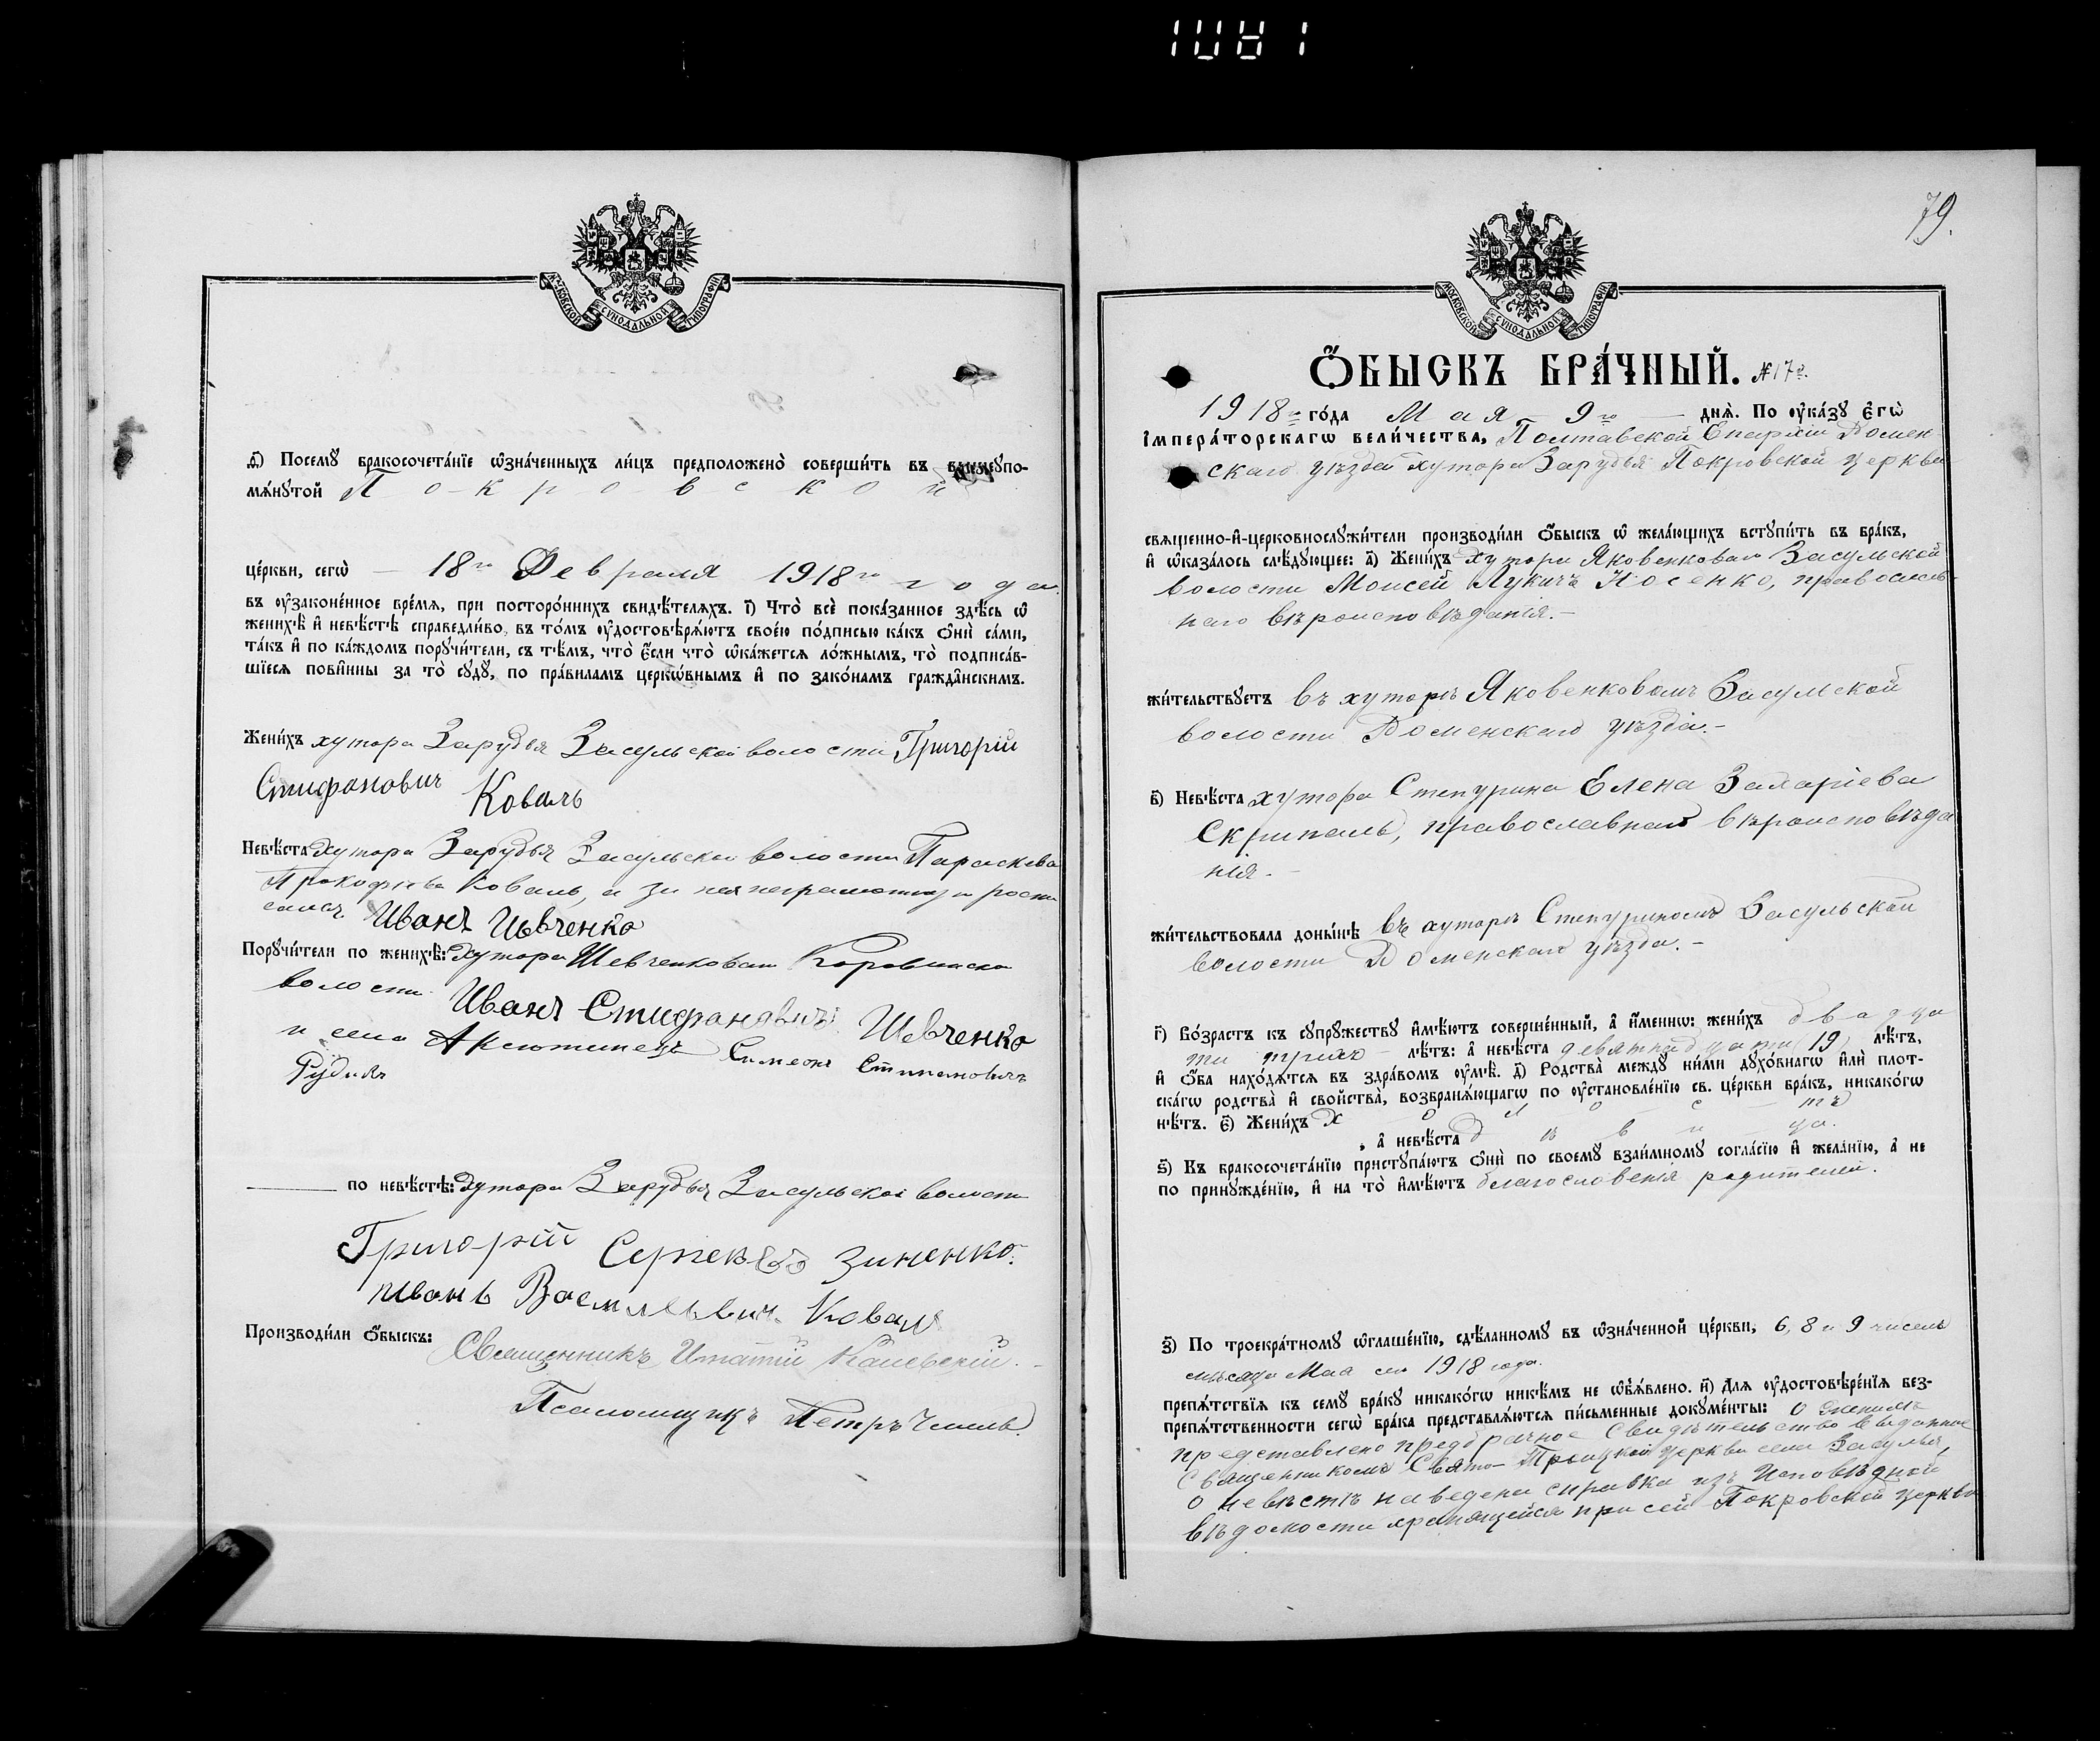 1081
МОСКОВСКОЙ СѴНОДАЛЬНОЙ ТИПОГРАФІИ
ѳ҃) Посемꙋ̀ бракосочета́нїе ѡ҆зна́ченныхъ ли́цъ предположено̀ соверши́ть въ вышеꙋпо-
мѧ́нꙋтой Покровской
це́ркви, сегѡ̀ — 18го Февраля 1918го года.
въ ᲂу҆зако́ненное вре́мѧ, при посторо́ннихъ свидѣ́телѧхъ. і҃) Что̀ всѐ пока́занное здѣ́сь ѡ҆
женихѣ̀ и҆ невѣ́стѣ справедли́во, въ то́мъ ᲂу҆достовѣрѧ́ютъ свое́ю по́дписью ка́къ ѻ҆нѝ са́ми,
та́къ и҆ по ка́ждомъ порꙋчи́тели, съ тѣ́мъ, что̀ є҆́сли что̀ ѡ҆ка́жетсѧ ло́жнымъ, то̀ подписа́в-
шїесѧ пови́нны за то̀ сꙋдꙋ̀, по пра́виламъ церкѡ́внымъ и҆ по зако́намъ гражда̑нскимъ.
Жени́хъ хутора Зарудья Засульской волости Григорій
Стифановичъ Коваль
Невѣ́ста хутора Зарудья Засульской волости Параскева
Прокофьева Коваль, а за нея неграмотную роспи
сался Иванъ Шевченко
Порꙋчи́тели по женихѣ̀: хутора Шевченковаго Коровинской
волости Иванъ Стифановичъ Шевченко
и села Аксютинецъ Симеонъ Стипановичъ
Рудикъ
по невѣ́стѣ: хутора Зарудья Засульской волости
Григорій Сергеевъ Зиненко.
Иванъ Васильевич. Коваль
Производи́ли ѻ҆́быскъ: Священникъ Игнатій Каневскій.
Псаломщикъ Петръ
79.
МОСКОВСКОЙ СѴНОДАЛЬНОЙ ТИПОГРАФІИ
Ѻ҆́БЫСКЪ БРА́ЧНЫЙ. №17й.
1918го го́да Мая — 9го — днѧ̀. По ᲂу҆ка́зꙋ є҆гѡ̀
і҆мпера́торскагѡ вели́чества, Полтавской Епархіи Ромен
скаго уѣзда хутора Зарудья Покровской церкви
свѧщенно-и҆-церковнослꙋжи́тели производи́ли ѻ҆́быскъ ѡ҆ жела́ющихъ встꙋпи́ть въ бра́къ,
и҆ ѡ҆каза́лось слѣ́дꙋющее: а҃) Жени́хъ хутора Яковенковаго Засульской
волости Моисей Лукичъ Носенко, православ-
наго вѣроисповѣданія.—
жи́тельствꙋетъ въ хуторѣ Яковенковомъ Засульской
волости Роменскаго уѣзда.—
в҃) Невѣ́ста хутора Степурина Елена Захаріева
Скрипаль, православнаго вѣроисповѣда
нія.—
жи́тельствовала доны́нѣ въ хуторѣ Степуриномъ Засульской
волости Роменскаго уѣзда.—
г҃) Во́зрастъ къ сꙋпрꙋ́жествꙋ и҆мѣ́ютъ соверше́нный, а҆ и҆́меннѡ: жени́хъ двадца
ти трехъ — лѣ́тъ: а҆ невѣ́ста девятнадцати (19) лѣ́тъ,
и҆ ѻ҆́ба нахо́дѧтсѧ въ здра́вомъ ᲂу҆мѣ̀. д҃) Родства̀ междꙋ̀ ни́ми дꙋхо́внагѡ и҆лѝ плот-
ска́гѡ родства̀ и҆ сво́йства̀, возбранѧ́ющагѡ по ᲂу҆становле́нїю св. це́ркви бра́къ, никако́гѡ
нѣ́тъ. є҃) Жени́хъ холостъ
, а҆ невѣ́ста дѣвица.
ѕ҃) Къ бракосочета́нїю пристꙋпа́ютъ ѻ҆нѝ по своемꙋ̀ взаи́мномꙋ согла́сїю и҆ жела́нїю, а҆ не
по принꙋжде́нїю, и҆ на то̀ и҆мѣ́ютъ благословенія родителей.
з҃) По троекра́тномꙋ ѡ҆глаше́нїю, сдѣ́ланномꙋ въ ѡ҆зна́ченной це́ркви, 6, 8 и 9 числъ
мѣсяца Мая сего 1918 года.
препѧ́тствїѧ къ семꙋ̀ бра́кꙋ никако́гѡ никѣ́мъ не ѡ҆б̾ѧ́влено. и҃) Длѧ ᲂу҆достовѣре́нїѧ без-
препѧ́тственности сегѡ̀ бра́ка представлѧ́ютсѧ пи́сьменные докꙋме́нты: О женихѣ
представлено предбрачное свидѣтельство выданное
священникомъ Свято-Троицкой церкви села Засулья,
о невѣстѣ наведена справка изъ Исповѣдной
вѣдомости хранящейся при сей Покровской церкви